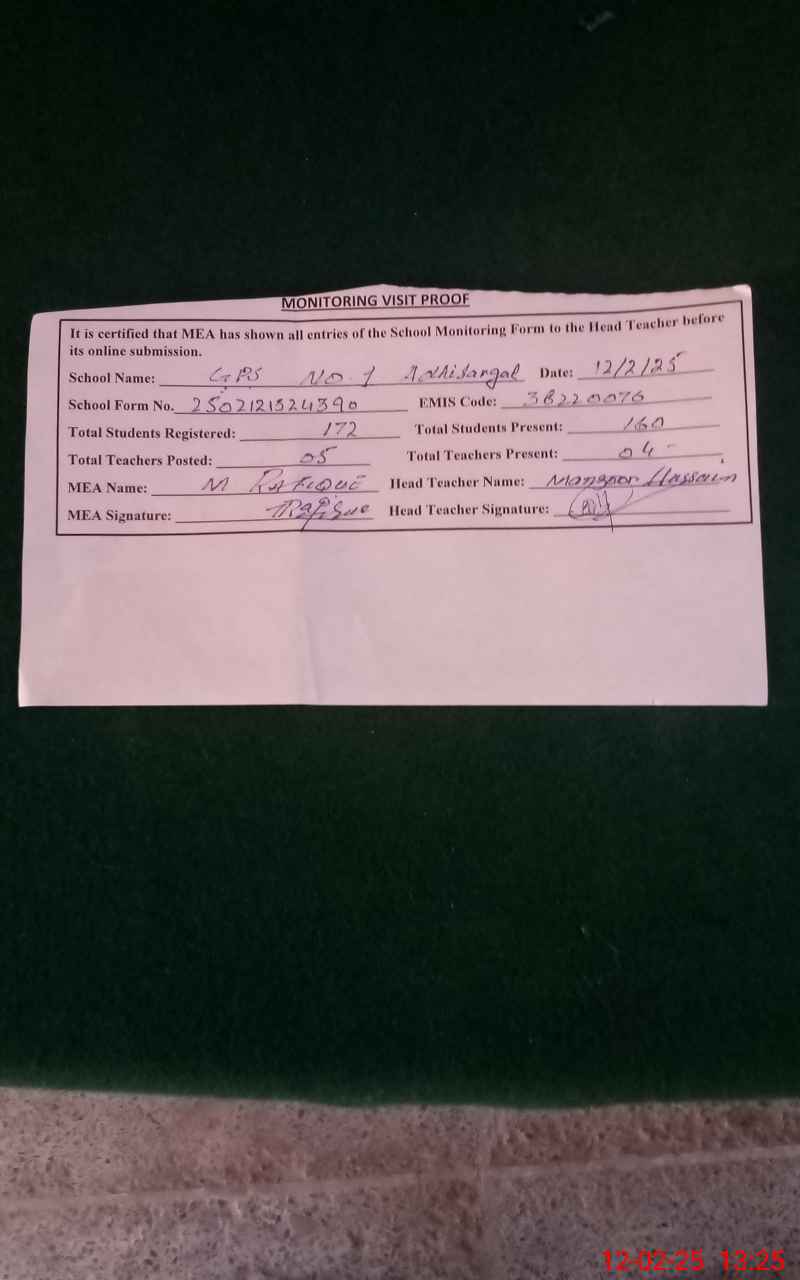 MONITORING VISIT PROOF
It is certified that MEA has shown all entries of the School Monitoring Form to the Head Teacher before
its online submission.
School Name: GPS No. 1 Date: 12/2/25
School Form No. 2502121524390 EMIS Code: 38220076
Total Students Registered: 172 Total Students Present: 160
Total Teachers Posted: 05 Total Teachers Present: 04
MEA Name: M RAFIQUE Head Teacher Name: Manzoor Hassain
MEA Signature: Rafique Head Teacher Signature:
12-02-25 13:25